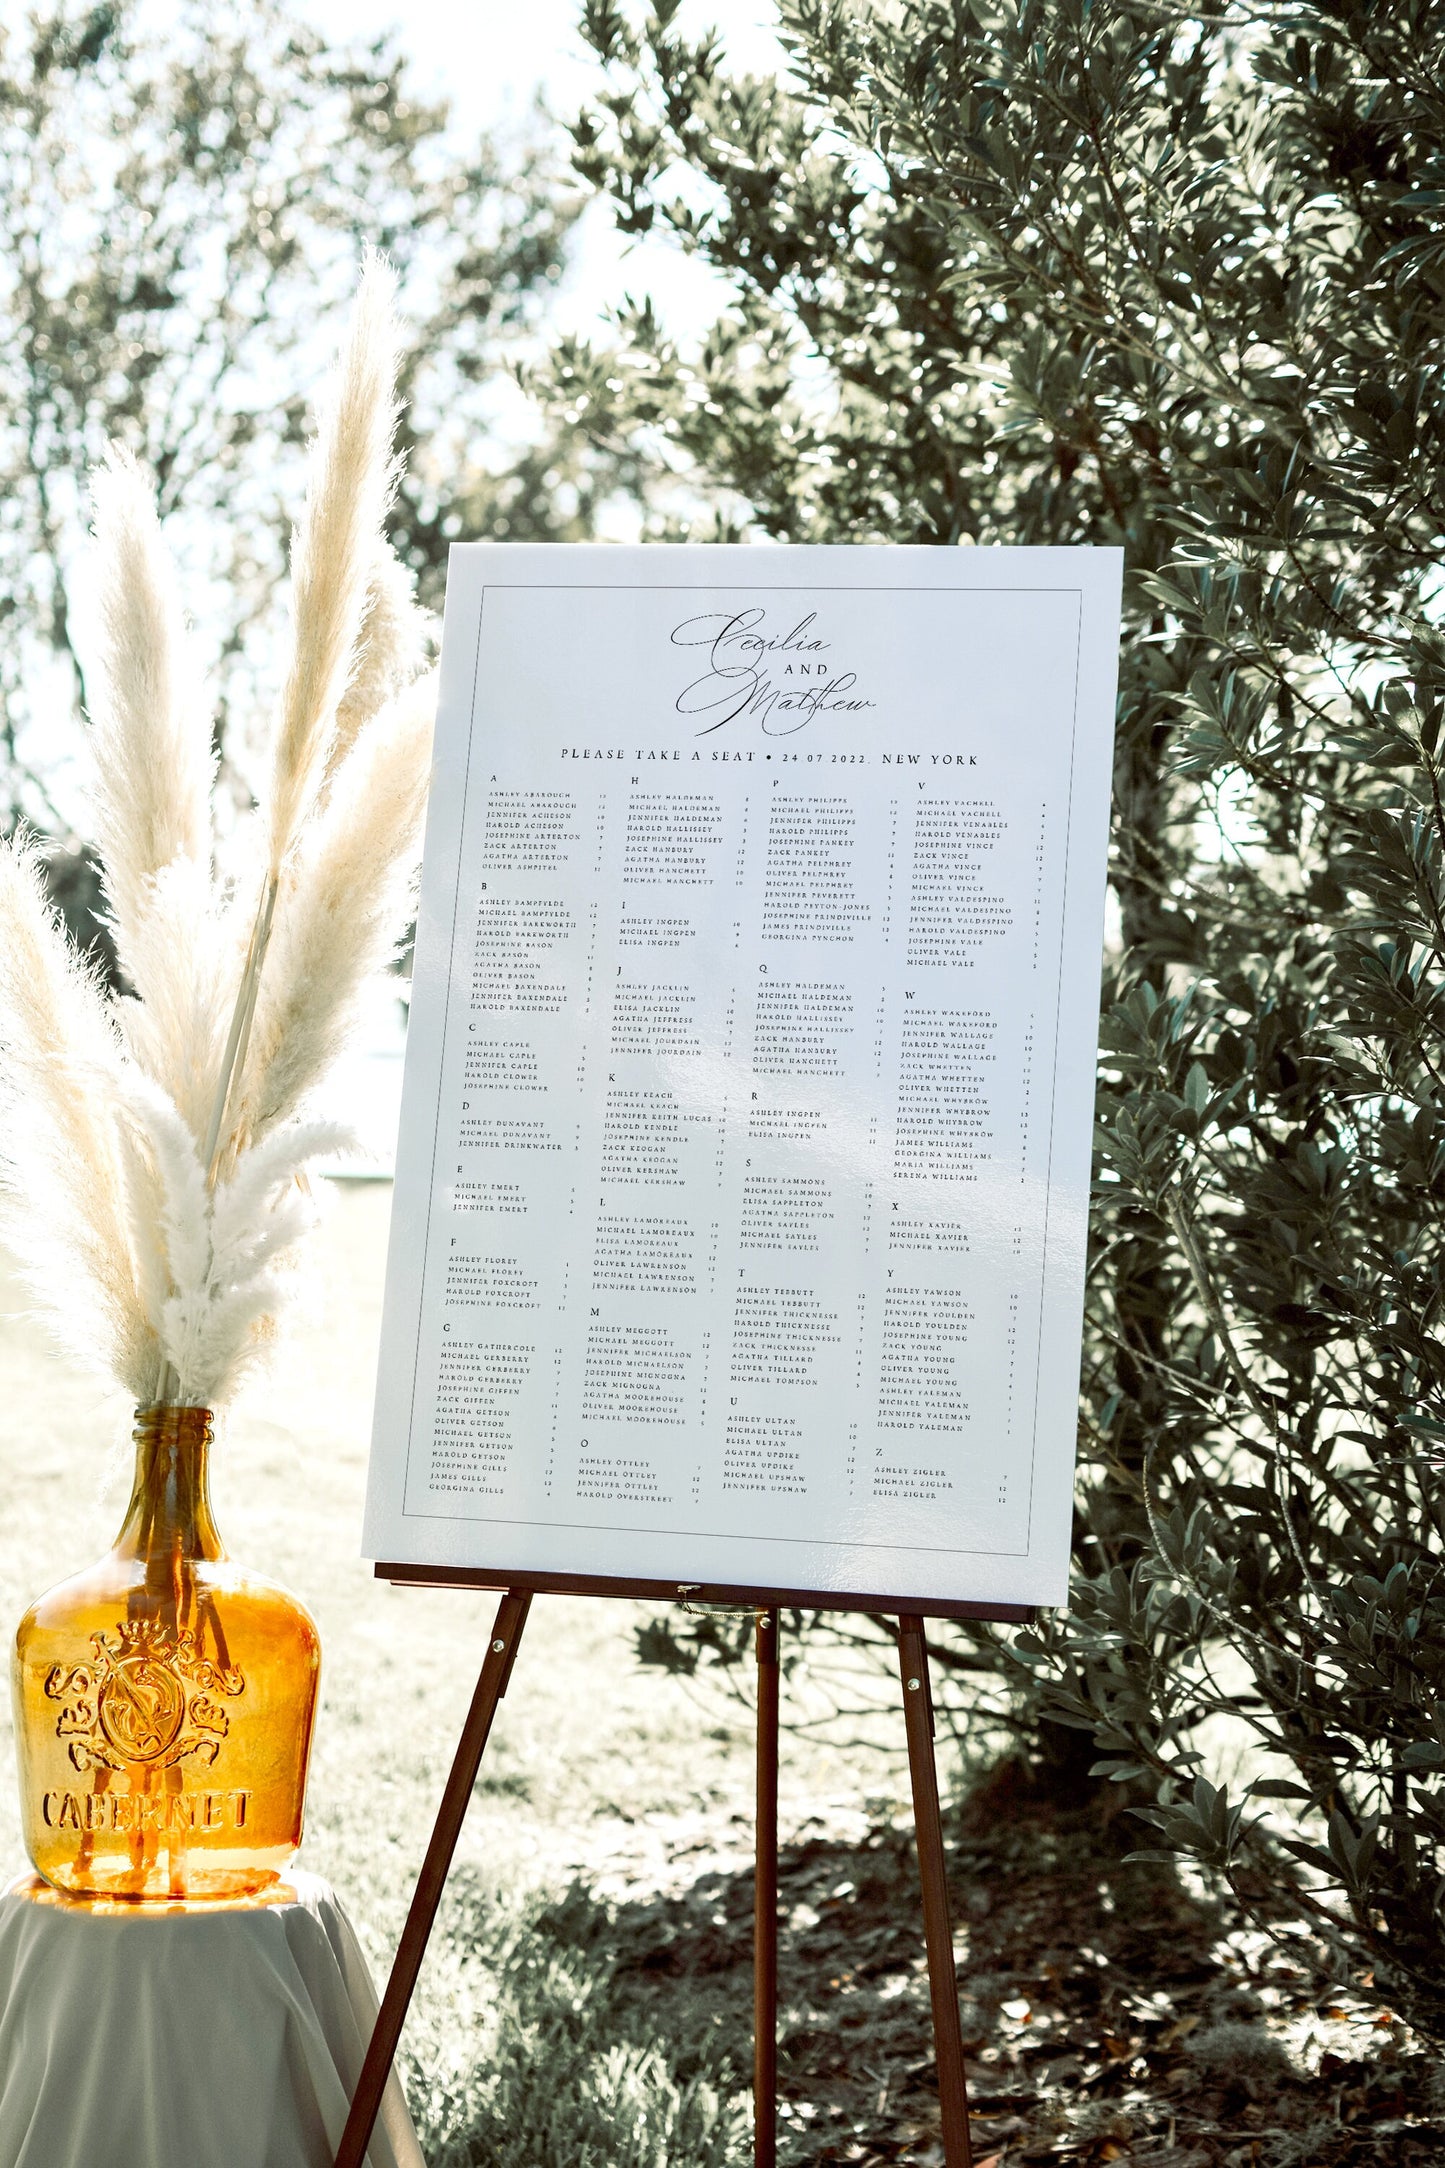 Cecilia
AND
Matthew
PLEASE TAKE A SEAT • 24.07.2022, NEW YORK
A
ASHLEY ABAROUGH
MICHAEL ABAROUGH
JENNIFER ACHESON 10
HAROLD ACHESON 10
JOSEPHINE ARTERTON 7
ZACK ARTERTON 7
AGATHA ARTERTON 7
OLIVER ASHPITEL 11
B
ASHLEY BAMPFYLDE 12
MICHAEL BAMPFYLDE 12
JENNIFER BARKWORTH 7
HAROLD BARKWORTH 7
JOSEPHINE BASON 7
ZACK BASON 11
AGATHA BASON 8
OLIVER BASON 8
MICHAEL BAXENDALE 5
JENNIFER BAXENDALE 5
HAROLD BAXENDALE 5
C
ASHLEY CAPLE 5
MICHAEL CAPLE 5
JENNIFER CAPLE 10
HAROLD CLOWER 10
JOSEPHINE CLOWER 7
D
ASHLEY DUNAVANT 9
MICHAEL DUNAVANT 9
JENNIFER DRINKWATER 5
E
ASHLEY EMERT 5
MICHAEL EMERT 5
JENNIFER EMERT 4
F
ASHLEY FLOREY 1
MICHAEL FLOREY 1
JENNIFER FOXCROFT
HAROLD FOXCROFT 7
JOSEPHINE FOXCROFT 12
G
ASHLEY GATHERCOLE 12
MICHAEL GERBERRY 12
JENNIFER GERBERRY 7
HAROLD GERBERRY 7
JOSEPHINE GIFFEN 7
ZACK GIFFEN 11
AGATHA GETSON 8
OLIVER GETSON 8
MICHAEL GETSON 5
JENNIFER GETSON 5
HAROLD GETSON 5
JOSEPHINE GILLS 12
JAMES GILLS 12
GEORGINA GILLS 4
H
ASHLEY HALDEMAN 8
MICHAEL HALDEMAN 8
JENNIFER HALDEMAN 6
HAROLD HALLISSEY 3
JOSEPHINE HALLISSEY 3
ZACK HANBURY 12
AGATHA HANBURY 12
OLIVER HANCHETT 10
MICHAEL HANCHETT 10
I
ASHLEY INGPEN 10
MICHAEL INGPEN
ELISA INGPEN
J
ASHLEY JACKLIN 5
MICHAEL JACKLIN 5
ELISA JACKLIN 10
AGATHA JEFFRESS 10
OLIVER JEFFRESS 7
MICHAEL JOURDAIN 12
JENNIFER JOURDAIN 12
K
ASHLEY KEACH 5
MICHAEL KEACH 5
JENNIFER KEITH LUCAS 10
HAROLD KENDLE
JOSEPHINE KENDLE 7
ZACK KEOGAN 12
AGATHA KEOGAN 12
OLIVER KERSHAW 7
MICHAEL KERSHAW 7
L
ASHLEY LAMOREAUX 10
MICHAEL LAMOREAUX 10
ELISA LAMOREAUX 7
AGATHA LAMOREAUX 12
OLIVER LAWRENSON 12
MICHAEL LAWRENSON 7
JENNIFER LAWRENSON 7
M
ASHLEY MEGGOTT 12
MICHAEL MEGGOTT 12
JENNIFER MICHAELSON 7
HAROLD MICHAELSON 7
JOSEPHINE MIGNOGNA 7
ZACK MIGNOGNA 11
AGATHA MOOREHOUSE 8
OLIVER MOOREHOUSE 8
MICHAEL MOOREHOUSE 5
O
ASHLEY OTTLEY 7
MICHAEL OTTLEY 12
JENNIFER OTTLEY 12
HAROLD OVERSTREET 7
P
ASHLEY PHILIPPS 12
MICHAEL PHILIPPS 12
JENNIFER PHILIPPS 7
HAROLD PHILIPPS 7
JOSEPHINE PANKEY 7
ZACK PANKEY 11
AGATHA PELPHREY 8
OLIVER PELPHREY 8
MICHAEL PELPHREY 5
JENNIFER PEVERETT 5
HAROLD PEYTON-JONES 5
JOSEPHINE PRINDIVILLE 12
JAMES PRINDIVILLE 12
GEORGINA PYNCHON 4
Q
ASHLEY HALDEMAN 5
MICHAEL HALDEMAN 5
JENNIFER HALDEMAN 10
HAROLD HALLISSEY 10
JOSEPHINE HALLISSEY 7
ZACK HANBURY 12
AGATHA HANBURY 12
OLIVER HANCHETT
MICHAEL HANCHETT
R
ASHLEY INGPEN 11
MICHAEL INGPEN 11
ELISA INGPEN 11
S
ASHLEY SAMMONS 10
MICHAEL SAMMONS 10
ELISA SAPPLETON 7
AGATHA SAPPLETON 12
OLIVER SAYLES 12
MICHAEL SAYLES 7
JENNIFER SAYLES 7
T
ASHLEY TEBBUTT 12
MICHAEL TEBBUTT 12
JENNIFER THICKNESSE 7
HAROLD THICKNESSE 7
JOSEPHINE THICKNESSE 7
ZACK THICKNESSE 11
AGATHA TILLARD 8
OLIVER TILLARD 8
MICHAEL TOMPSON 5
U
ASHLEY ULTAN 10
MICHAEL ULTAN 10
ELISA ULTAN 7
AGATHA UPDIKE 12
OLIVER UPDIKE 12
MICHAEL UPSHAW 7
JENNIFER UPSHAW 7
V
ASHLEY VACHELL 4
MICHAEL VACHELL 4
JENNIFER VENABLES
HAROLD VENABLES 2
JOSEPHINE VINCE 12
ZACK VINCE 12
AGATHA VINCE 7
OLIVER VINCE 7
MICHAEL VINCE 7
ASHLEY VALDESPINO 11
MICHAEL VALDESPINO 8
JENNIFER VALDESPINO 8
HAROLD VALDESPINO 5
JOSEPHINE VALE 5
OLIVER VALE 5
MICHAEL VALE 5
W
ASHLEY WAKEFORD 5
MICHAEL WAKEFORD 5
JENNIFER WALLAGE 10
HAROLD WALLAGE 10
JOSEPHINE WALLAGE 7
ZACK WHETTEN 12
AGATHA WHETTEN 12
OLIVER WHETTEN 2
MICHAEL WHYBROW 2
JENNIFER WHYBROW 12
HAROLD WHYBROW 12
JOSEPHINE WHYBROW 4
JAMES WILLIAMS 8
GEORGINA WILLIAMS 8
MARIA WILLIAMS 2
SERENA WILLIAMS 2
X
ASHLEY XAVIER 12
MICHAEL XAVIER 12
JENNIFER XAVIER 10
Y
ASHLEY YAWSON 10
MICHAEL YAWSON 10
JENNIFER YOULDEN 7
HAROLD YOULDEN 12
JOSEPHINE YOUNG 12
ZACK YOUNG 7
AGATHA YOUNG 7
OLIVER YOUNG
MICHAEL YOUNG
ASHLEY YALEMAN
MICHAEL YALEMAN
JENNIFER YALEMAN
HAROLD YALEMAN 1
Z
ASHLEY ZIGLER 7
MICHAEL ZIGLER 12
ELISA ZIGLER 12
CABERNET